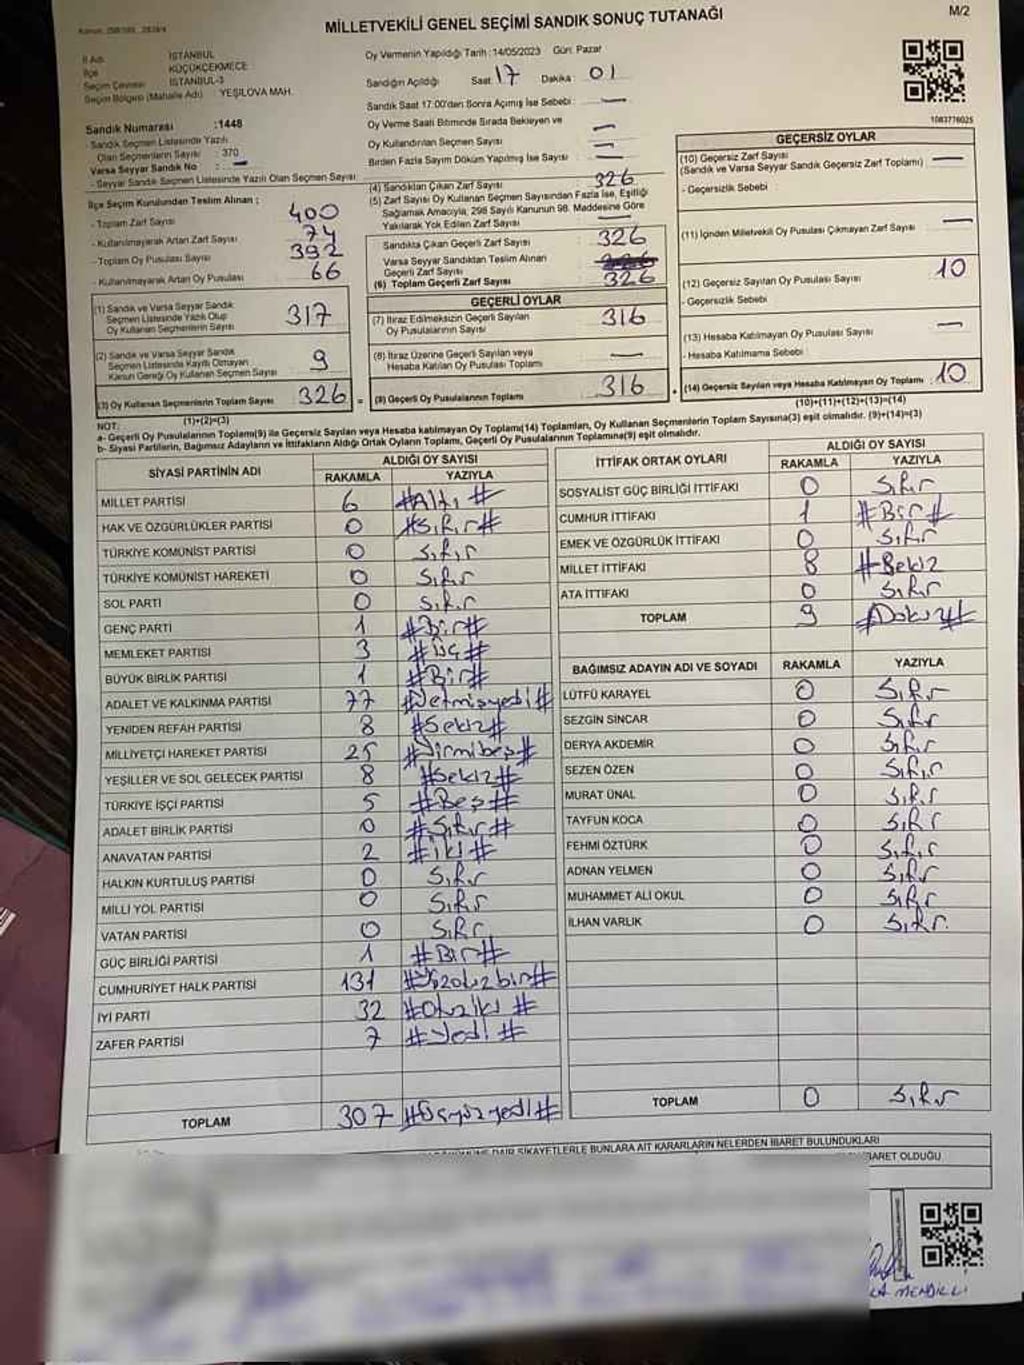 M/2
MİLLETVEKİLİ GENEL SEÇİMİ SANDIK SONUÇ TUTANAĞI
İl Adı İSTANBUL
İlçe KÜÇÜKÇEKMECE
Seçim Çevresi İSTANBUL-3
Seçim Bölgesi (Mahalle Adı) : YEŞİLOVA MAH.
Oy Vermenin Yapıldığı Tarih : 14/05/2023 Gün: Pazar
Sandığın Açıldığı Saat : 17 Dakika : 01
Sandık Saat 17:00'den Sonra Açılmış İse Sebebi : —
Oy Verme Saati Bitiminde Sırada Bekleyen ve
Oy Kullandırılan Seçmen Sayısı —
Birden Fazla Sayım Döküm Yapılmış İse Sayısı : —
1083776025
Sandık Numarası :1448
- Sandık Seçmen Listesinde Yazılı
Olan Seçmenlerin Sayısı : 370
Varsa Seyyar Sandık No : —
- Seyyar Sandık Seçmen Listesinde Yazılı Olan Seçmen Sayısı
İlçe Seçim Kurulundan Teslim Alınan ;
- Toplam Zarf Sayısı 400
- Kullanılmayarak Artan Zarf Sayısı 74
- Toplam Oy Pusulası Sayısı 392
- Kullanılmayarak Artan Oy Pusulası 66
(1) Sandık ve Varsa Seyyar Sandık
Seçmen Listesinde Yazılı Olup
Oy Kullanan Seçmenlerin Sayısı 317
(2) Sandık ve Varsa Seyyar Sandık
Seçmen Listesinde Kayıtlı Olmayan
Kanun Gereği Oy Kullanan Seçmen Sayısı 9
(3) Oy Kullanan Seçmenlerin Toplam Sayısı 326
(1)+(2)=(3)
(4) Sandıktan Çıkan Zarf Sayısı 326
(5) Zarf Sayısı Oy Kullanan Seçmen Sayısından Fazla İse, Eşitliği
Sağlamak Amacıyla, 298 Sayılı Kanunun 98. Maddesine Göre
Yakılarak Yok Edilen Zarf Sayısı —
Sandıkta Çıkan Geçerli Zarf Sayısı 326
Varsa Seyyar Sandıktan Teslim Alınan
Geçerli Zarf Sayısı
(6) Toplam Geçerli Zarf Sayısı 326
GEÇERLİ OYLAR
(7) İtiraz Edilmeksizin Geçerli Sayılan
Oy Pusulalarının Sayısı 316
(8) İtiraz Üzerine Geçerli Sayılan veya
Hesaba Katılan Oy Pusulası Toplamı —
(9) Geçerli Oy Pusulalarının Toplamı 316
GEÇERSİZ OYLAR
(10) Geçersiz Zarf Sayısı
(Sandık ve Varsa Seyyar Sandık Geçersiz Zarf Toplamı) —
- Geçersizlik Sebebi :
(11) İçinden Milletvekili Oy Pusulası Çıkmayan Zarf Sayısı —
(12) Geçersiz Sayılan Oy Pusulası Sayısı 10
- Geçersizlik Sebebi
(13) Hesaba Katılmayan Oy Pusulası Sayısı —
- Hesaba Katılmama Sebebi :
(14) Geçersiz Sayılan veya Hesaba Katılmayan Oy Toplamı : 10
(10)+(11)+(12)+(13)=(14)
NOT:
a- Geçerli Oy Pusulalarının Toplamı(9) ile Geçersiz Sayılan veya Hesaba Katılmayan Oy Pusulası Toplamı(14) Toplamları, Oy Kullanan Seçmenlerin Toplam Sayısına(3) eşit olmalıdır. (9)+(14)=(3)
b- Siyasi Partilerin, Bağımsız Adayların ve İttifakların Aldığı Ortak Oyların Toplamı, Geçerli Oy Pusulalarının Toplamına(9) eşit olmalıdır.
SİYASİ PARTİNİN ADI ALDIĞI OY SAYISI
RAKAMLA YAZIYLA
MİLLET PARTİSİ 6 #Altı#
HAK VE ÖZGÜRLÜKLER PARTİSİ 0 #Sıfır#
TÜRKİYE KOMÜNİST PARTİSİ 0 Sıfır
TÜRKİYE KOMÜNİST HAREKETİ 0 Sıfır
SOL PARTİ 0 Sıfır
GENÇ PARTİ 1 #Bir#
MEMLEKET PARTİSİ 3 #Üç#
BÜYÜK BİRLİK PARTİSİ 1 #Bir#
ADALET VE KALKINMA PARTİSİ 77 #Yetmişyedi#
YENİDEN REFAH PARTİSİ 8 #Sekiz#
MİLLİYETÇİ HAREKET PARTİSİ 25 #Yirmibeş#
YEŞİLLER VE SOL GELECEK PARTİSİ 8 #Sekiz#
TÜRKİYE İŞÇİ PARTİSİ 5 #Beş#
ADALET BİRLİK PARTİSİ 0 #Sıfır#
ANAVATAN PARTİSİ 2 #iki#
HALKIN KURTULUŞ PARTİSİ 0 Sıfır
MİLLİ YOL PARTİSİ 0 Sıfır
VATAN PARTİSİ 0 Sıfır
GÜÇ BİRLİĞİ PARTİSİ 1 #Bir#
CUMHURİYET HALK PARTİSİ 131 #Yüzotuzbir#
İYİ PARTİ 32 #Otuziki#
ZAFER PARTİSİ 7 #Yedi#
TOPLAM 307 #Üçyüzyedi#
İTTİFAK ORTAK OYLARI ALDIĞI OY SAYISI
RAKAMLA YAZIYLA
SOSYALİST GÜÇ BİRLİĞİ İTTİFAKI 0 Sıfır
CUMHUR İTTİFAKI 1 #Bir#
EMEK VE ÖZGÜRLÜK İTTİFAKI 0 Sıfır
MİLLET İTTİFAKI 8 #Sekiz
ATA İTTİFAKI 0 Sıfır
TOPLAM 9 #Dokuz#
BAĞIMSIZ ADAYIN ADI VE SOYADI RAKAMLA YAZIYLA
LÜTFÜ KARAYEL 0 Sıfır
SEZGİN SİNCAR 0 Sıfır
DERYA AKDEMİR 0 Sıfır
SEZEN ÖZEN 0 Sıfır
MURAT ÜNAL 0 Sıfır
TAYFUN KOCA 0 Sıfır
FEHMİ ÖZTÜRK 0 Sıfır
ADNAN YELMEN 0 Sıfır
MUHAMMET ALİ OKUL 0 Sıfır
İLHAN VARLIK 0 Sıfır
TOPLAM 0 Sıfır
DAİR ŞİKAYETLERLE BUNLARA AİT KARARLARIN NELERDEN İBARET BULUNDUKLARI
İBARET OLDUĞU
MENDİLLİ